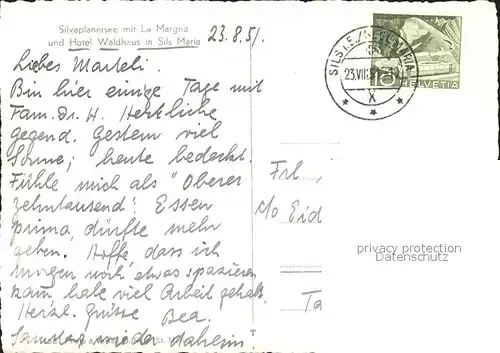 Silvaplanersee mit La Margna
und Hotel Waldhaus in Sils Maria
23.8.51.
Liebes Marteli.
Bin hier einige Tage mit
Fam. Dr. H. Herrliche
Gegend. Gestern viel
Sonne; heute bedeckt.
Fühle mich als "Oberer
zehntausend! Essen
prima, dürfte mehr
geben. Hoffe, dass ich
morgen noch etwas spazieren
kann, habe viel Arbeit gehabt.
Herzl. Grüsse Bea.
Samstag wieder daheim
SILS I.E./SEGL MARIA
23.VIII.51
X
10
HELVETIA
Frl.
p/o Eid
privacy protection
Datenschutz
Ta